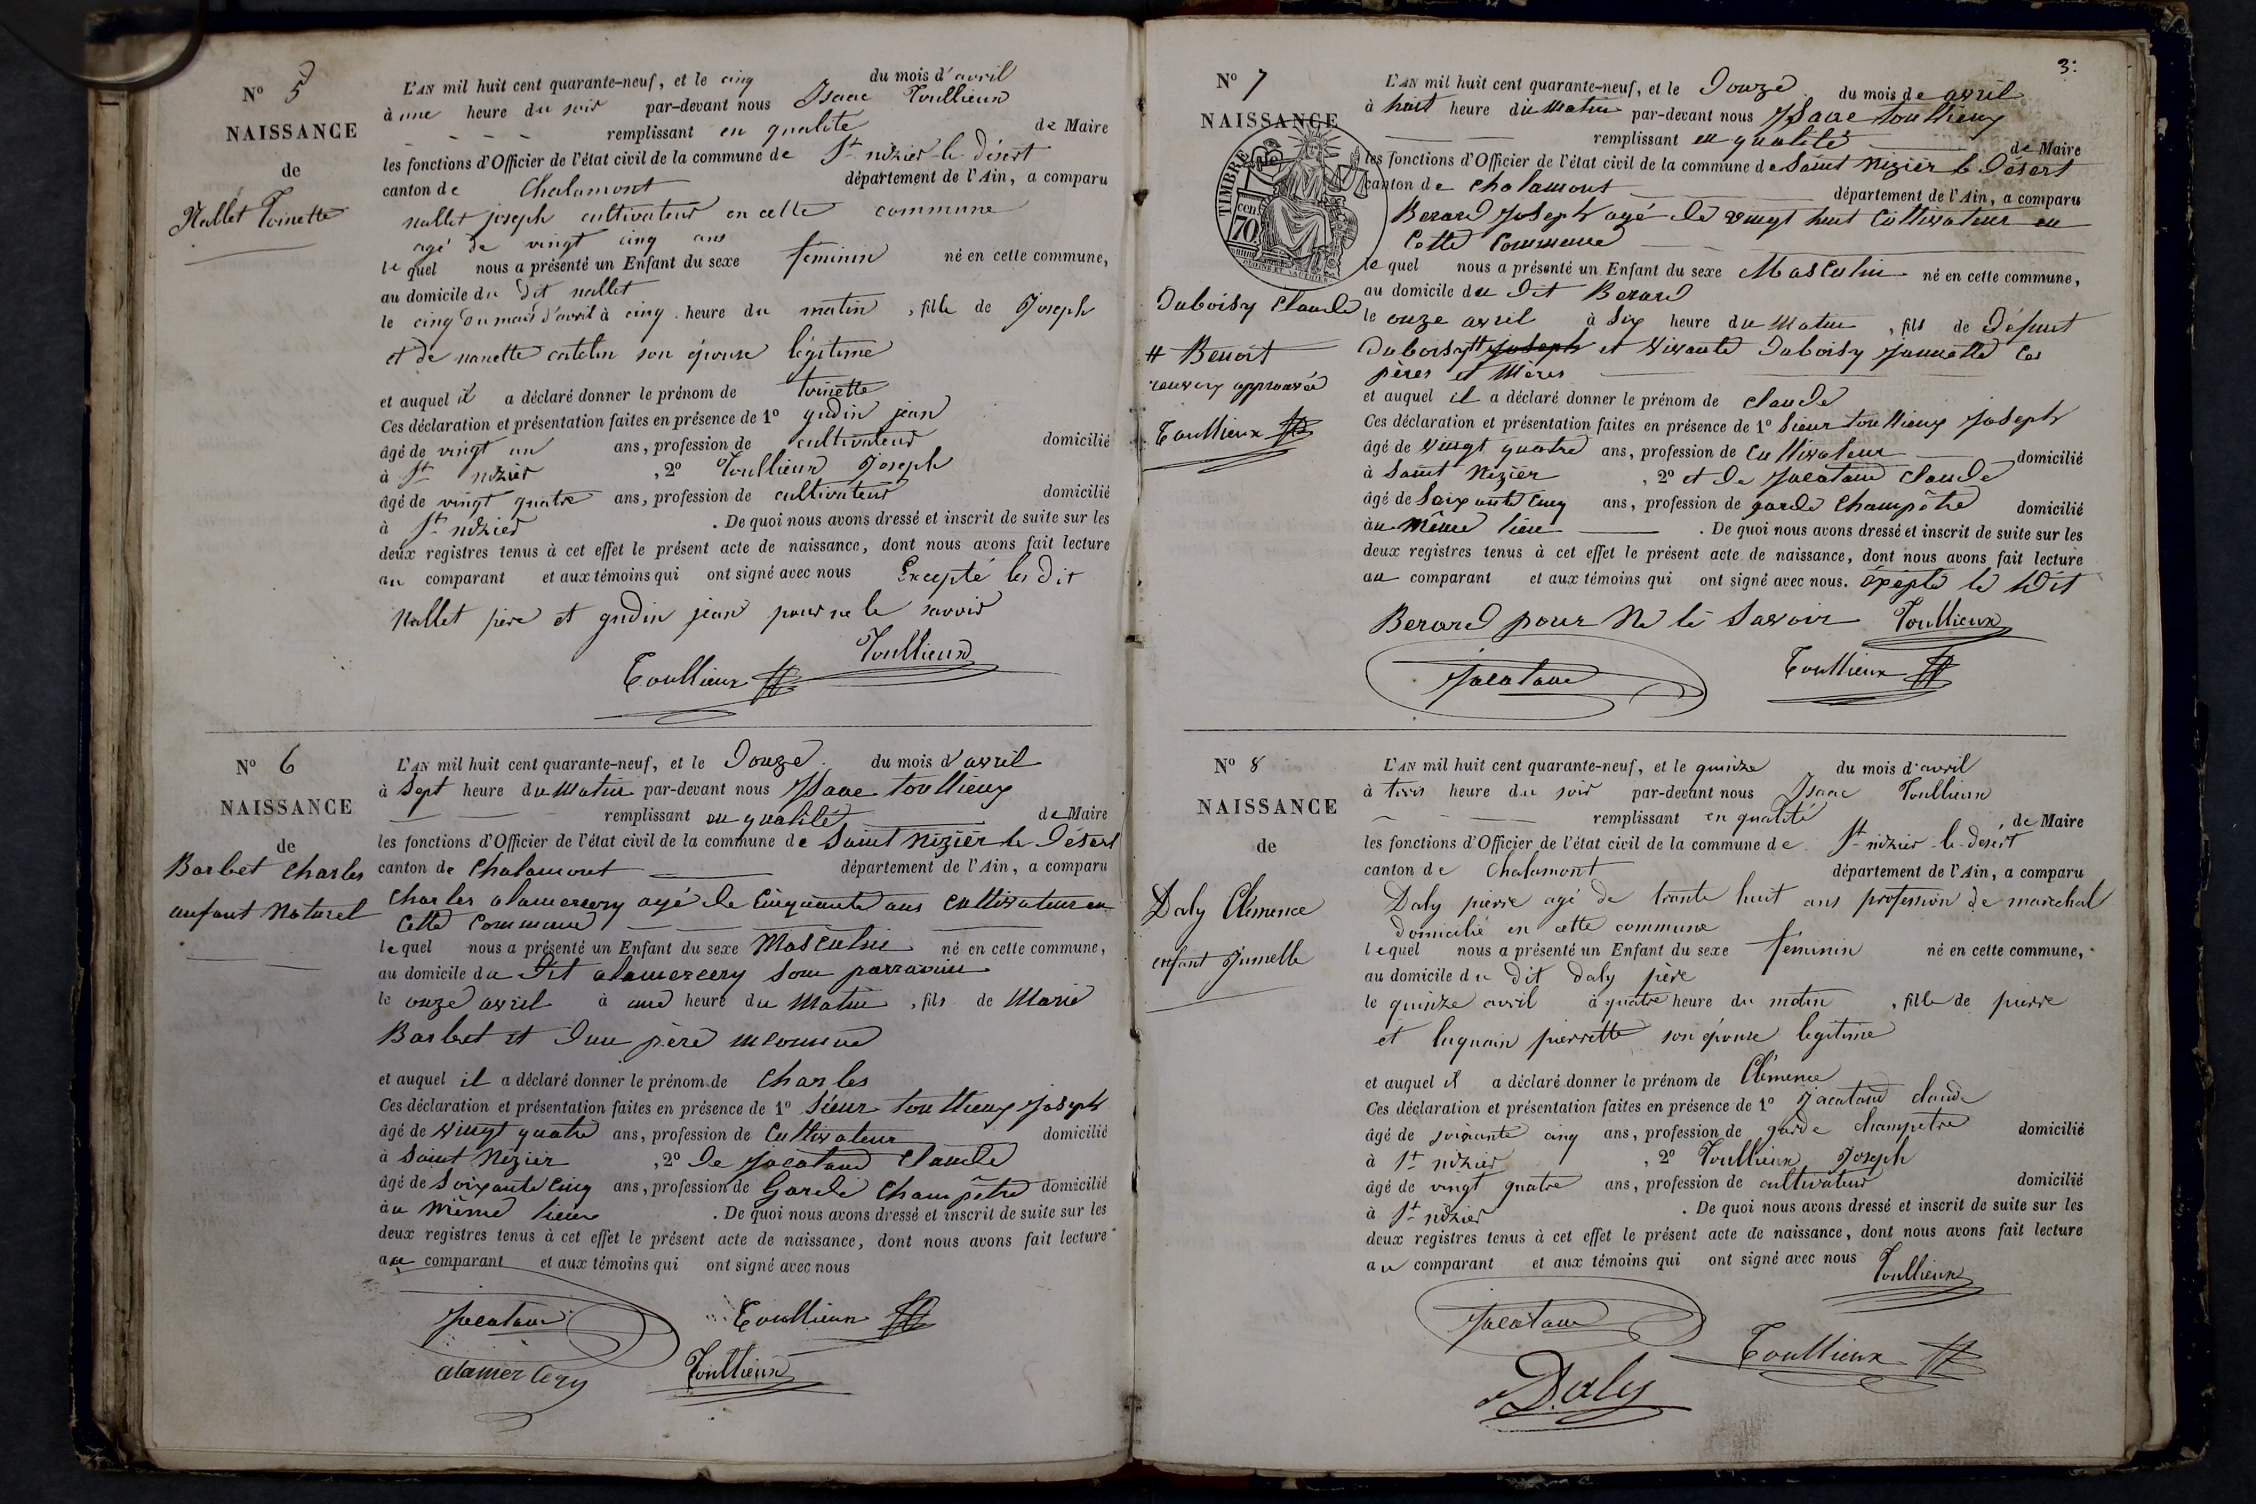 N° 5
NAISSANCE
de
Nallet Toinette
L'AN mil huit cent quarante-neuf, et le cinq du mois d'avril
à une heure du soir par-devant nous Isaac Toullieux
remplissant en qualité de Maire
les fonctions d'Officier de l'état civil de la commune de St nizier-le-désert
canton de Chalamont département de l'Ain, a comparu
nallet joseph cultivateur en cette commune
agé de vingt cinq ans
lequel nous a présenté un Enfant du sexe féminin né en cette commune,
au domicile du dit nallet
le cinq du mois d'avril à cinq heure du matin, fille de Joseph
et de nanette catelin son épouse légitime
et auquel il a déclaré donner le prénom de toinette
Ces déclaration et présentation faites en présence de 1° gudin jean
âgé de vingt un ans, profession de cultivateur domicilié
à St nizier, 2° Toullieux Joseph
âgé de vingt quatre ans, profession de cultivateur domicilié
à St nizier. De quoi nous avons dressé et inscrit de suite sur les
deux registres tenus à cet effet le présent acte de naissance, dont nous avons fait lecture
au comparant et aux témoins qui ont signé avec nous Excepté les dit
Nallet père et gudin jean pour ne le savoir
Toullieux
Toullieux
N° 6
NAISSANCE
de
Barbet Charles
anfant Naturel
L'AN mil huit cent quarante-neuf, et le Douze du mois d'avril
à Sept heure du Matin par-devant nous Isaac toullieux
remplissant en qualité de Maire
les fonctions d'Officier de l'état civil de la commune de Saint Nizier le Désert
canton de Chalamont département de l'Ain, a comparu
Charles alamercery agé de Cinquante ans Cultivateur en
Cette Commune
lequel nous a présenté un Enfant du sexe Masculin né en cette commune,
au domicile du Dit alamercery Son parravin
le onze avril à une heure du Matin, fils de Marie
Barbet et d'un père inconnue
et auquel il a déclaré donner le prénom de Charles
Ces déclaration et présentation faites en présence de 1° Sieur toullieux Joseph
âgé de vingt quatre ans, profession de Cultivateur domicilié
à Saint Nizier, 2° de Jacataud Claude
âgé de Soixante Cinq ans, profession de Garde Champêtre domicilié
au Même lieu. De quoi nous avons dressé et inscrit de suite sur les
deux registres tenus à cet effet le présent acte de naissance, dont nous avons fait lecture
au comparant et aux témoins qui ont signé avec nous
Jacataud Toullieux
alamercery Toullieux
3.
N° 7
NAISSANCE
TIMBRE
cen. 70
Duboisy Claude
# Benoit
renvoy approuvée
Toullieux
L'AN mil huit cent quarante-neuf, et le Douze du mois de avril
à huit heure du Matin par-devant nous Isaac toullieux
remplissant en qualité de Maire
les fonctions d'Officier de l'état civil de la commune de Saint Nizier le Désert
canton de Chalamont département de l'Ain, a comparu
Berard Joseph agé de vingt huit Cultivateur en
Cette Commune
lequel nous a présenté un Enfant du sexe Masculin né en cette commune,
au domicile du Dit Berard
le onze avril à Six heure du Matin, fils de Défunt
Duboisy # Joseph et vivante Duboisy Jannette les
pères et Mères
et auquel il a déclaré donner le prénom de Claude
Ces déclaration et présentation faites en présence de 1° Sieur toullieux Joseph
âgé de vingt quatre ans, profession de Cultivateur domicilié
à Saint Nizier, 2° et de Jacataud Claude
âgé de Soixante Cinq ans, profession de garde Champêtre domicilié
au Même lieu. De quoi nous avons dressé et inscrit de suite sur les
deux registres tenus à cet effet le présent acte de naissance, dont nous avons fait lecture
au comparant et aux témoins qui ont signé avec nous. éxépté le Dit
Berard pour Ne le Savoir Toullieux
Jacataud Toullieux
N° 8
NAISSANCE
de
Daly Clémence
enfant Jumelle
L'AN mil huit cent quarante-neuf, et le quinze du mois d'avril
à trois heure du soir par-devant nous Isaac Toullieux
remplissant en qualité de Maire
les fonctions d'Officier de l'état civil de la commune de St nizier-le-désert
canton de Chalamont département de l'Ain, a comparu
Daly pierre agé de trante huit ans profession de marechal
domicilié en cette commune
lequel nous a présenté un Enfant du sexe féminin né en cette commune,
au domicile du dit daly père
le quinze avril à quatre heure du matin, fille de pierre
et luquain pierrette son épouse legitime
et auquel il a déclaré donner le prénom de Clémence
Ces déclaration et présentation faites en présence de 1° Jacataud claude
âgé de soixante cinq ans, profession de garde champetre domicilié
à St nizier, 2° Toullieux Joseph
âgé de vingt quatre ans, profession de cultivateur domicilié
à St nizier. De quoi nous avons dressé et inscrit de suite sur les
deux registres tenus à cet effet le présent acte de naissance, dont nous avons fait lecture
au comparant et aux témoins qui ont signé avec nous Toullieux
Jacataud
Toullieux
Daly